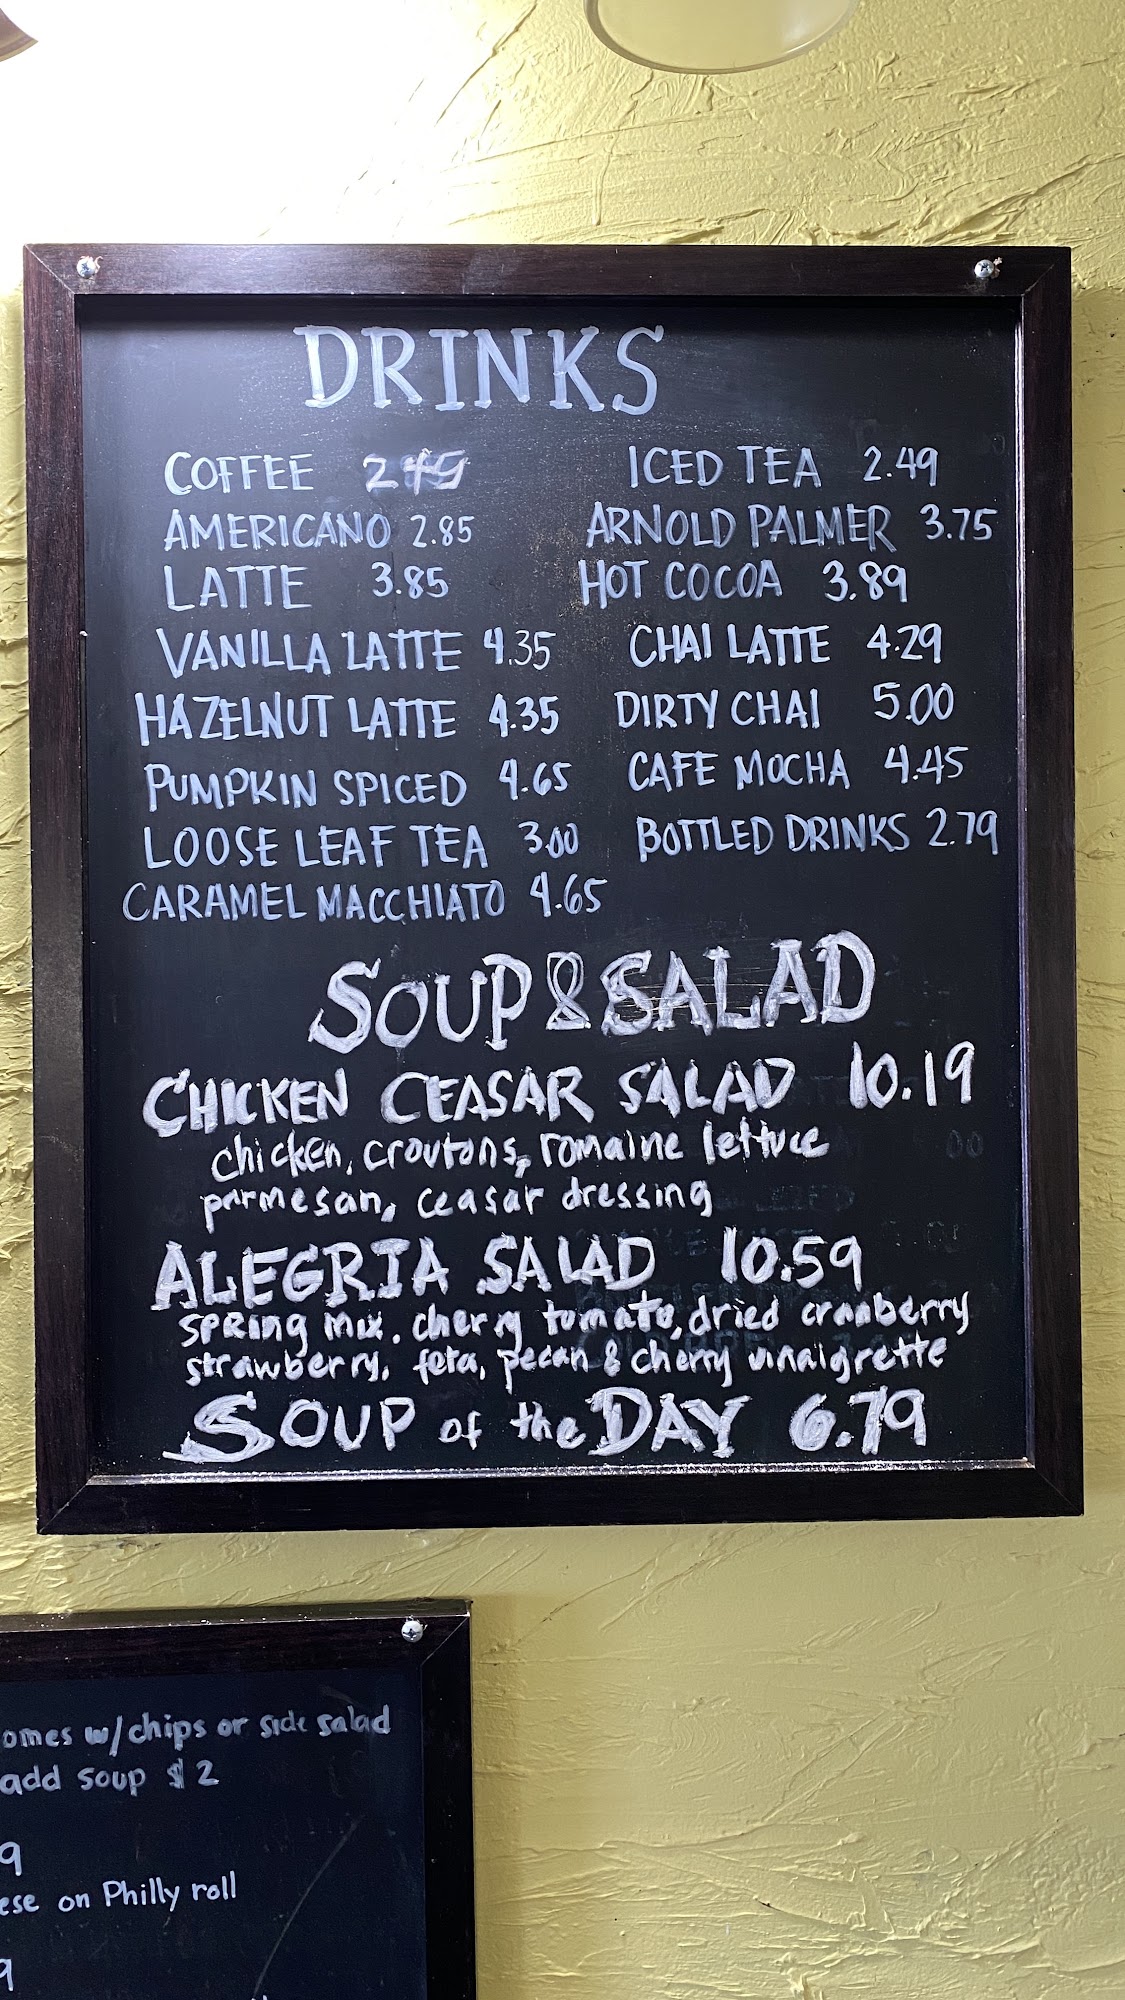 DRINKS
COFFEE 2.49
AMERICANO 2.85
LATTE 3.85
VANILLA LATTE 4.35
HAZELNUT LATTE 4.35
PUMPKIN SPICED 4.65
LOOSE LEAF TEA 3.00
CARAMEL MACCHIATO 4.65
ICED TEA 2.49
ARNOLD PALMER 3.75
HOT COCOA 3.89
CHAI LATTE 4.29
DIRTY CHAI 5.00
CAFE MOCHA 4.45
BOTTLED DRINKS 2.79
SOUP & SALAD
CHICKEN CEASAR SALAD 10.19
chicken, croutons, romaine lettuce
parmesan, ceasar dressing
ALEGRIA SALAD 10.59
spring mix, cherry tomato, dried cranberry
strawberry, feta, pecan & cherry vinaigrette
SOUP of the DAY 6.79
omes w/chips or side salad
add soup $2
9
ese on Philly roll
9